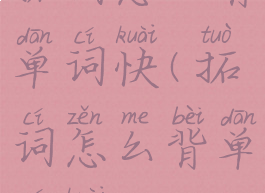 dān cí kuài tuò
单词快(拓
cí zěn me bèi dān
词怎么背单